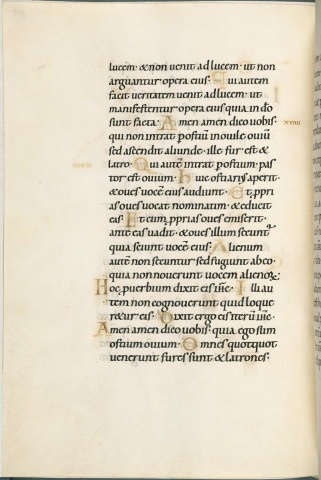 lucem· & non uenit ad lucem· ut non
arguantur opera eius· Qui autem
facit ueritatem uenit ad lucem· ut
manifestentur opera eius quia in dō
sunt facta· Amen amen dico uobis· xviiii
qui non intrat p ostiū in ouile ouiū
sed ascendit aliunde· ille fur est &
latro· Qui autē intrat p ostium· pas
tor est ouium· Huic ostiariꝰ aperit·
& oues uocē eius audiunt· Et ꝓpri
as oues uocat nominatim· & educit
eas· Et cum ꝓprias oues emiserit·
ante eas uadit· & oues illum secunt˜
quia sciunt uocē eius· Alienum
autē non secuntur sed fugiunt ab eo·
quia non nouerunt uocem alienoꝝ·
Hoc puerbium dixit eis ihc· Illi au
tem non cognouerunt quid loque
r&ur eis· Dixit ergo eis iterū ihc·
Amen amen dico uobis· quia ego sum
ostium ouium· Omnes quotquot
uenerunt fures sunt & latrones·